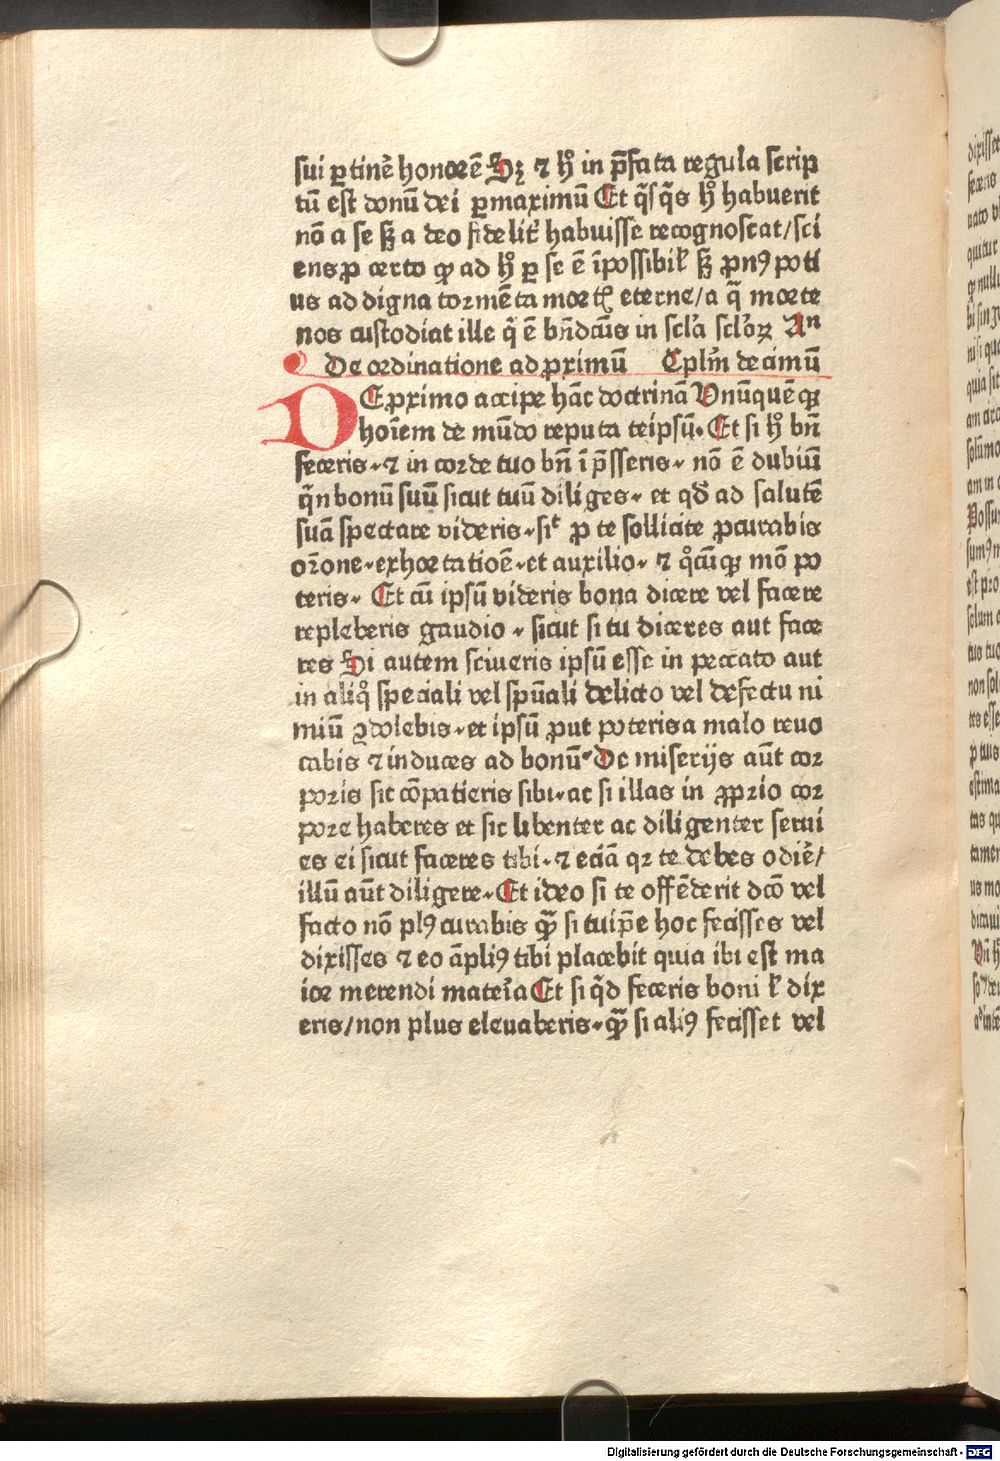 sui ꝑtinẽ honorẽ Sꝫ ⁊ hͦ in p̃fata regula scrip
tũ est donũ dei ꝑmaximũ Et q̃sq̃s hͦ habuerit
nõ a se sꝫ a deo fidelit̃ habuisse recognoscat/sci
ens ꝓ certo ꝙ ad hͦ ꝑ se ẽ ĩpossibil̃ sꝫ ꝓnꝰ poti
us ad digna tormẽta mortꝭ eterne/a q̃ morte
nos custodiat ille q̃ ẽ bñdcũs in scl̃a scl̃oꝝ Am̃
De ordinatione ad ꝓximũ Cplm̃ decimũ
DE ꝓximo accipe hãc doctrinã Unũquẽqꝫ
hoĩem de mũdo reputa teipsũ. Et si hͦ bñ
feceris. ⁊ in corde tuo bñ ĩp̃sseris. nõ ẽ dubiũ
q̃n bonũ suũ sicut tuũ diliges. et qđ ad salutẽ
suã spectare videris. sic̃ ꝓ te sollicite ꝓcurabis
or̃one. exhortatioẽ. et auxilio. ⁊ qͦcũqꝫ mõ po
teris. Et cũ ipsũ videris bona dicere vel facere
repleberis gaudio. sicut si tu diceres aut face
res Si autem sciueris ipsũ esse in peccato aut
in aliqͦ speciali vel spũali delicto vel defectu ni
miũ ꝯdolebis. et ipsũ ꝓut poteris a malo reuo
cabis ⁊ induces ad bonũ. De miserijs aũt cor
poris sic cõpatieris sibi. ac si illas in ꝓprio cor
pore haberes et sic libenter ac diligenter serui
es ei sicut faceres tibi. ⁊ eciã qꝛ te debes odiẽ/
illũ aũt diligere. Et ideo si te offẽderit dcõ vel
facto nõ plꝰ curabis ꝙ̃ si tuip̃e hoc fecisses vel
dixisses ⁊ eo ãpliꝰ tibi placebit quia ibi est ma
ior merendi mater̃a Et si q̃d feceris boni l̃ dix
eris/non plus eleuaberis. ꝙ̃ si aliꝰ fecisset vel
Digitalisierung gefördert durch die Deutsche Forschungsgemeinschaft - DFG